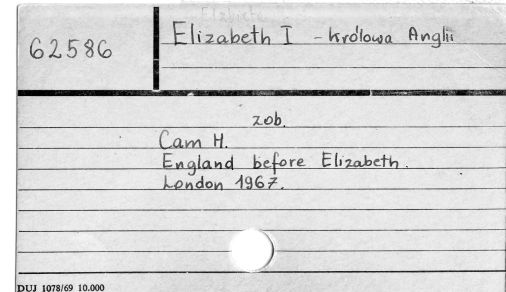 62586
Elizabeth I - królowa Anglii
zob.
Cam H.
England before Elizabeth.
London 1967.
DUJ 1078/69 10.000